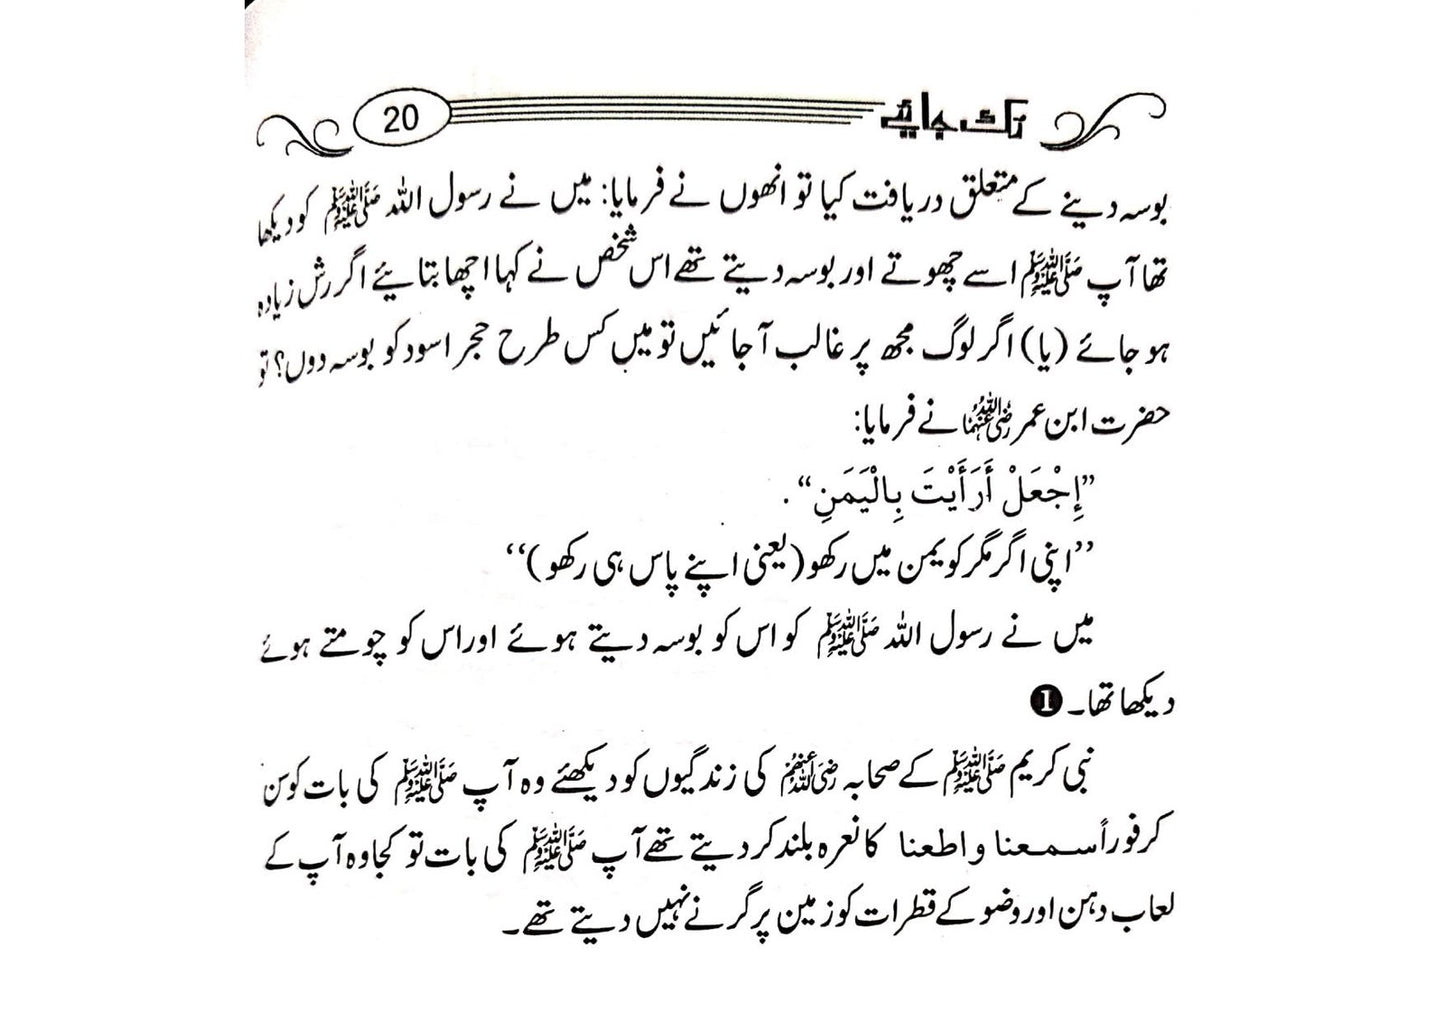 رک جایئے 20
بوسہ دینے کے متعلق دریافت کیا تو انھوں نے فرمایا: میں نے رسول اللہ ﷺ کو دیکھا
تھا آپ ﷺ اسے چھوتے اور بوسہ دیتے تھے اس شخص نے کہا اچھا بتائیے اگر رش زیادہ
ہو جائے (یا) اگر لوگ مجھ پر غالب آ جائیں تو میں کس طرح حجر اسود کو بوسہ دوں؟ تو
حضرت ابن عمر رضی اللہ عنہما نے فرمایا:
”إِجْعَلْ أَرَأَيْتَ بِالْيَمَنِ“ .
’’اپنی اگر مگر کو یمن میں رکھو (یعنی اپنے پاس ہی رکھو)‘‘
میں نے رسول اللہ ﷺ کو اس کو بوسہ دیتے ہوئے اور اس کو چومتے ہوئے
دیکھا تھا۔ ❶
نبی کریم ﷺ کے صحابہ رضی اللہ عنہم کی زندگیوں کو دیکھئے وہ آپ ﷺ کی بات کو سن
کر فوراً سمعنا و اطعنا کا نعرہ بلند کر دیتے تھے آپ ﷺ کی بات تو کجا وہ آپ کے
لعاب دہن اور وضو کے قطرات کو زمین پر گرنے نہیں دیتے تھے۔